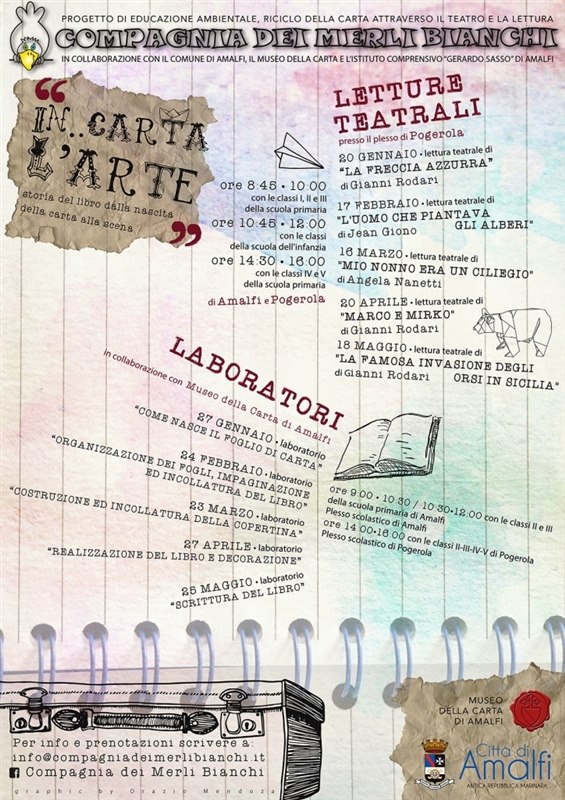 PROGETTO DI EDUCAZIONE AMBIENTALE, RICICLO DELLA CARTA ATTRAVERSO IL TEATRO E LA LETTURA
COMPAGNIA DEI MERLI BIANCHI
IN COLLABORAZIONE CON IL COMUNE DI AMALFI, IL MUSEO DELLA CARTA E L'ISTITUTO COMPRENSIVO "GERARDO SASSO" DI AMALFI
"IN..CARTA
L'ARTE
storia del libro dalla nascita
della carta alla scena"
ore 8:45 • 10:00
con le classi I, II e III
della scuola primaria
ore 10:45 • 12:00
con le classi
della scuola dell'infanzia
ore 14:30 • 16:00
con le classi IV e V
della scuola primaria
di Amalfi e Pogerola
LETTURE
TEATRALI
presso il plesso di Pogerola
20 GENNAIO • lettura teatrale di
"LA FRECCIA AZZURRA"
di Gianni Rodari
17 FEBBRAIO • lettura teatrale di
"L'UOMO CHE PIANTAVA
GLI ALBERI"
di Jean Giono
16 MARZO • lettura teatrale di
"MIO NONNO ERA UN CILIEGIO"
di Angela Nanetti
20 APRILE • lettura teatrale di
"MARCO E MIRKO"
di Gianni Rodari
18 MAGGIO • lettura teatrale di
"LA FAMOSA INVASIONE DEGLI
ORSI IN SICILIA"
di Gianni Rodari
LABORATORI
in collaborazione con Museo della Carta di Amalfi
27 GENNAIO • laboratorio
"COME NASCE IL FOGLIO DI CARTA"
24 FEBBRAIO • laboratorio
"ORGANIZZAZIONE DEI FOGLI, IMPAGINAZIONE
ED INCOLLATURA DEL LIBRO"
23 MARZO • laboratorio
"COSTRUZIONE ED INCOLLATURA DELLA COPERTINA"
27 APRILE • laboratorio
"REALIZZAZIONE DEL LIBRO E DECORAZIONE"
25 MAGGIO • laboratorio
"SCRITTURA DEL LIBRO"
ore 9:00 • 10:30 / 10:30 • 12:00 con le classi II e III
della scuola primaria di Amalfi
Plesso scolastico di Amalfi
ore 14:00•16:00 con le classi II-III-IV-V di Pogerola
Plesso scolastico di Pogerola
Per info e prenotazioni scrivere a:
info@compagniadeimerlibianchi.it
f Compagnia dei Merli Bianchi
graphic by Orazio Mendoza
MUSEO
DELLA CARTA
DI AMALFI
Città di
Amalfi
ANTICA REPUBBLICA MARINARA